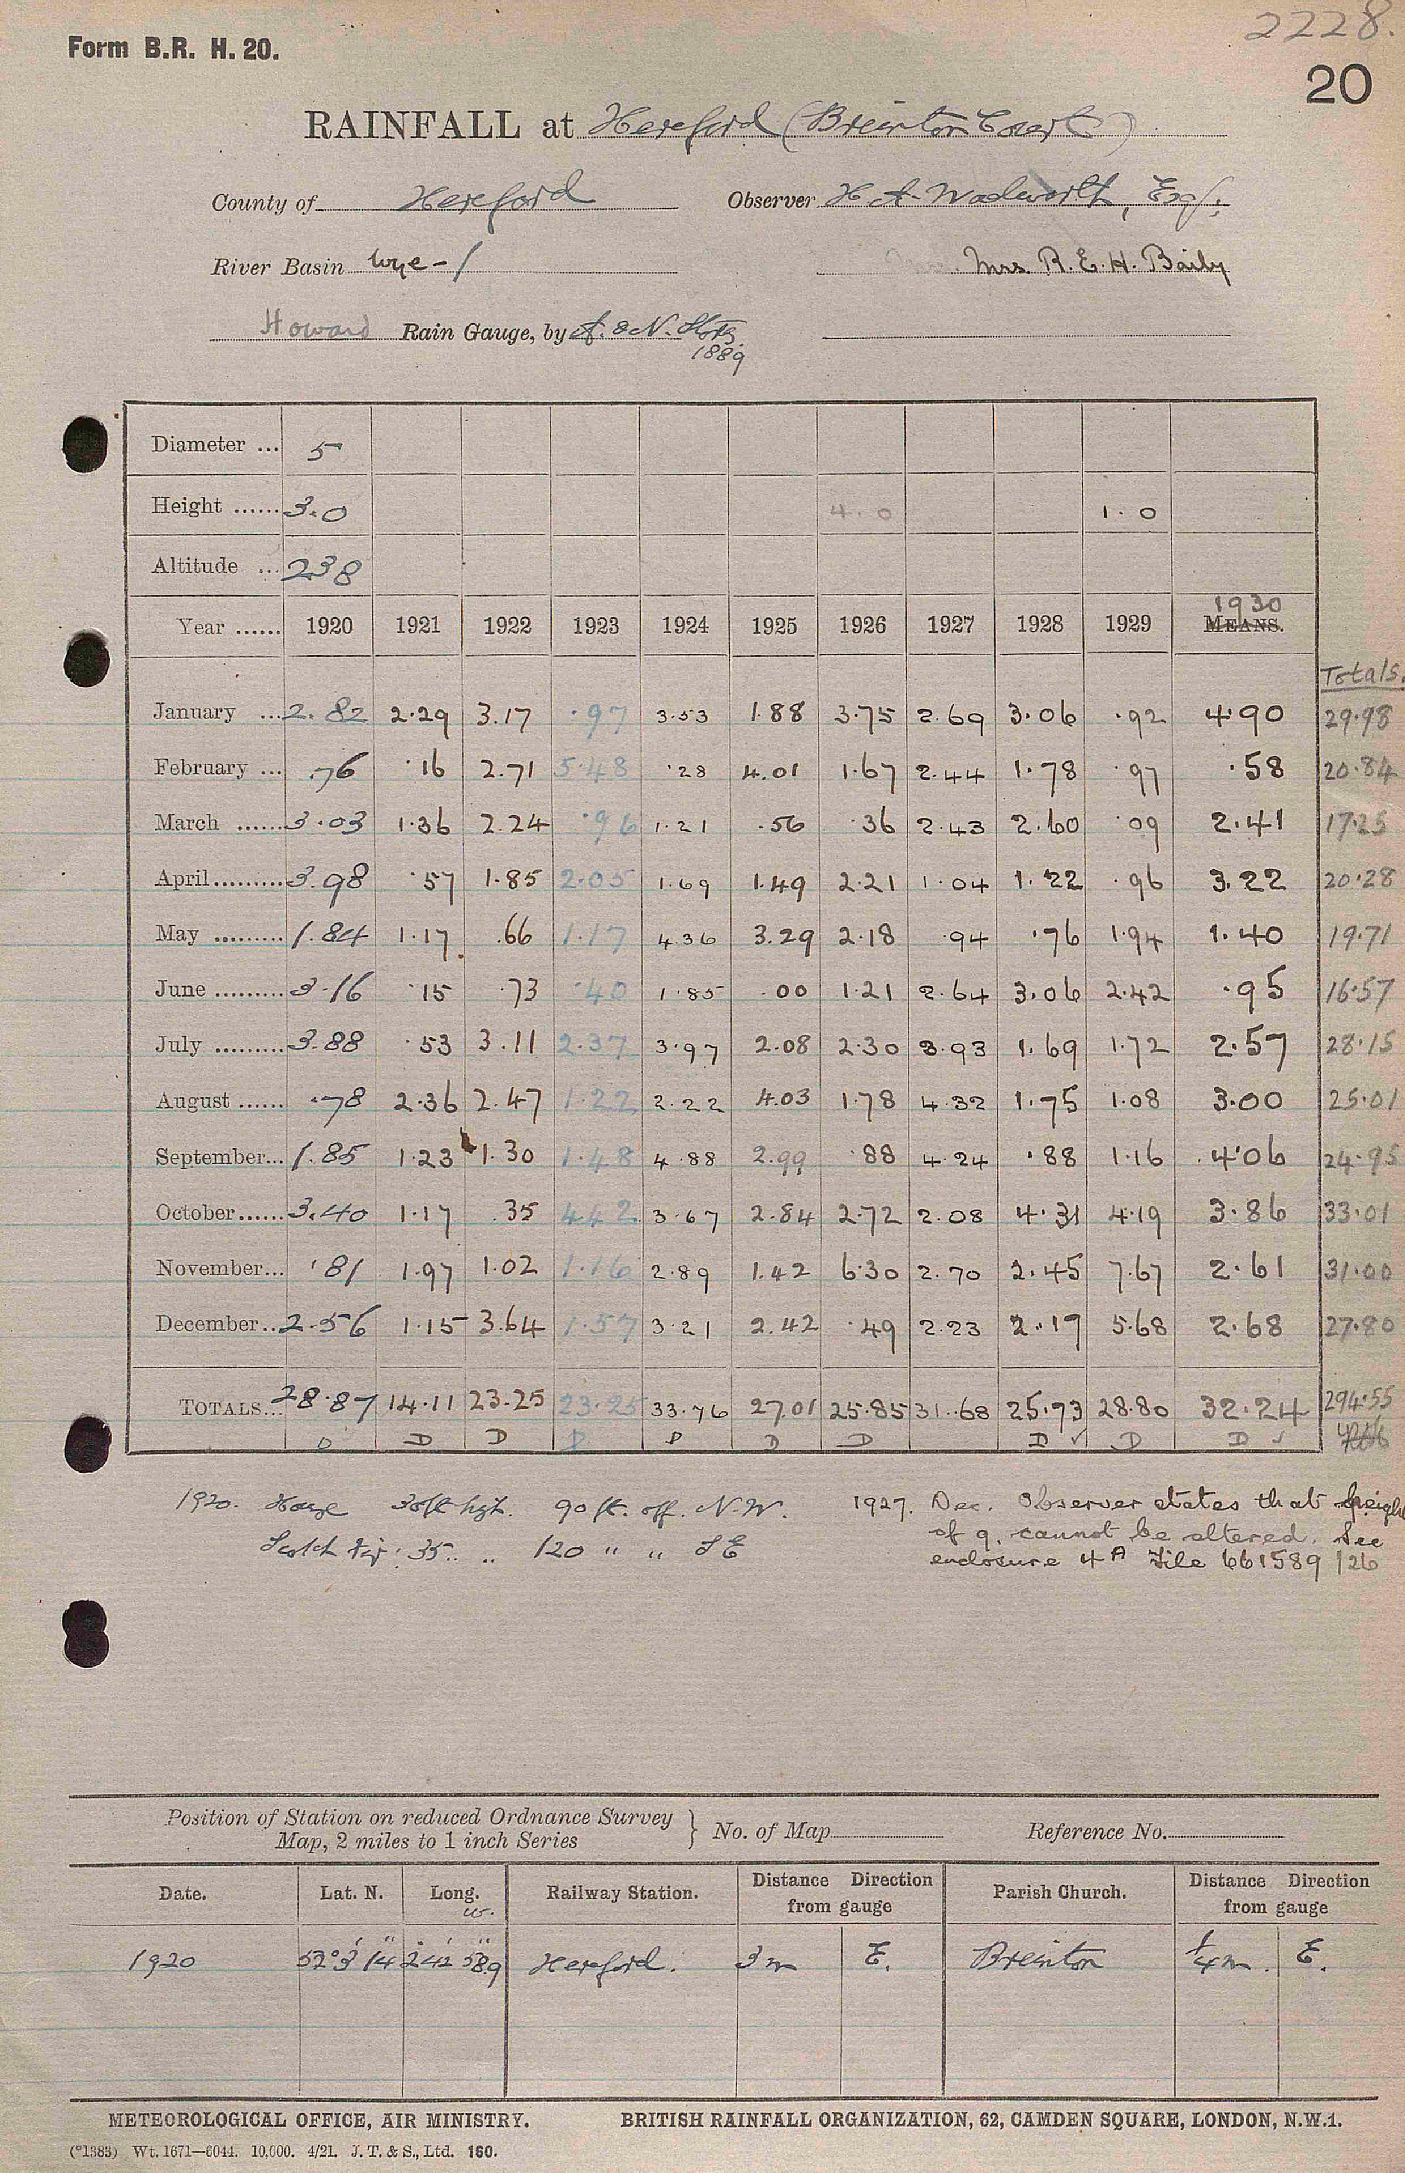 2228.
Form B.R. H. 20.
20
RAINFALL at Hereford (Breinton Court)
County of Hereford Observer H. A. Wadworth, Esq.
River Basin Wye - 1 Mrs. R. E. H. Baily
Howard Rain Gauge, by A. & N. Stores
1889
Diameter ... 5
Height ...... 3.0 4.0 1.0
Altitude ... 238
1930
Year ...... 1920 1921 1922 1923 1924 1925 1926 1927 1928 1929 MEANS.
Totals.
January ... 2.82 2.29 3.17 .97 3.53 1.88 3.75 2.69 3.06 .92 4.90 29.98
February ... .76 .16 2.71 5.48 .28 4.01 1.67 2.44 1.78 .97 .58 20.84
March ...... 3.03 1.36 2.24 .96 1.21 .56 .36 2.43 2.60 .09 2.41 17.25
April ......... 3.98 .57 1.85 2.05 1.69 1.49 2.21 1.04 1.22 .96 3.22 20.28
May ......... 1.84 1.17 .66 1.17 4.36 3.29 2.18 .94 .76 1.94 1.40 19.71
June ......... 3.16 .15 .73 .40 1.85 .00 1.21 2.64 3.06 2.42 .95 16.57
July ......... 3.88 .53 3.11 2.37 3.97 2.08 2.30 3.93 1.69 1.72 2.57 28.15
August ...... .78 2.36 2.47 1.22 2.22 4.03 1.78 4.32 1.75 1.08 3.00 25.01
September... 1.85 1.23 1.30 1.48 4.88 2.99 .88 4.24 .88 1.16 4.06 24.95
October...... 3.40 1.17 .35 4.42 3.67 2.84 2.72 2.08 4.31 4.19 3.86 33.01
November... .81 1.97 1.02 1.16 2.89 1.42 6.30 2.70 2.45 7.67 2.61 31.00
December... 2.56 1.15 3.64 1.57 3.21 2.42 .49 2.23 2.17 5.68 2.68 27.80
TOTALS... 28.87 14.11 23.25 23.25 33.76 27.01 25.85 31.68 25.73 28.80 32.24 294.55
D D D D D D D D ✓ D D ✓
1920. House 30ft hgh. 90 ft. off. N.W. 1927. Dec. Observer states that height
Scotch fir 35 „ 120 " " S E of g. cannot be altered. See
enclosure 4A File 661589/26
Position of Station on reduced Ordnance Survey
Map, 2 miles to 1 inch Series } No. of Map Reference No.
Date. Lat. N. Long. Railway Station. Distance Direction Parish Church. Distance Direction
w. from gauge from gauge
1920 52° 3' 14" 2° 42' 58.9" Hereford. 3 m E. Breinton 1/4 m. E.
METEOROLOGICAL OFFICE, AIR MINISTRY. BRITISH RAINFALL ORGANIZATION, 62, CAMDEN SQUARE, LONDON, N.W.1.
(*1383) Wt. 1671—6044. 10,000. 4/21. J. T. & S., Ltd. 160.